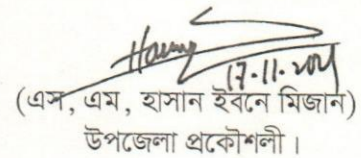 17.11.2021
(এস, এম, হাসান ইবনে মিজান)
উপজেলা প্রকৌশলী।